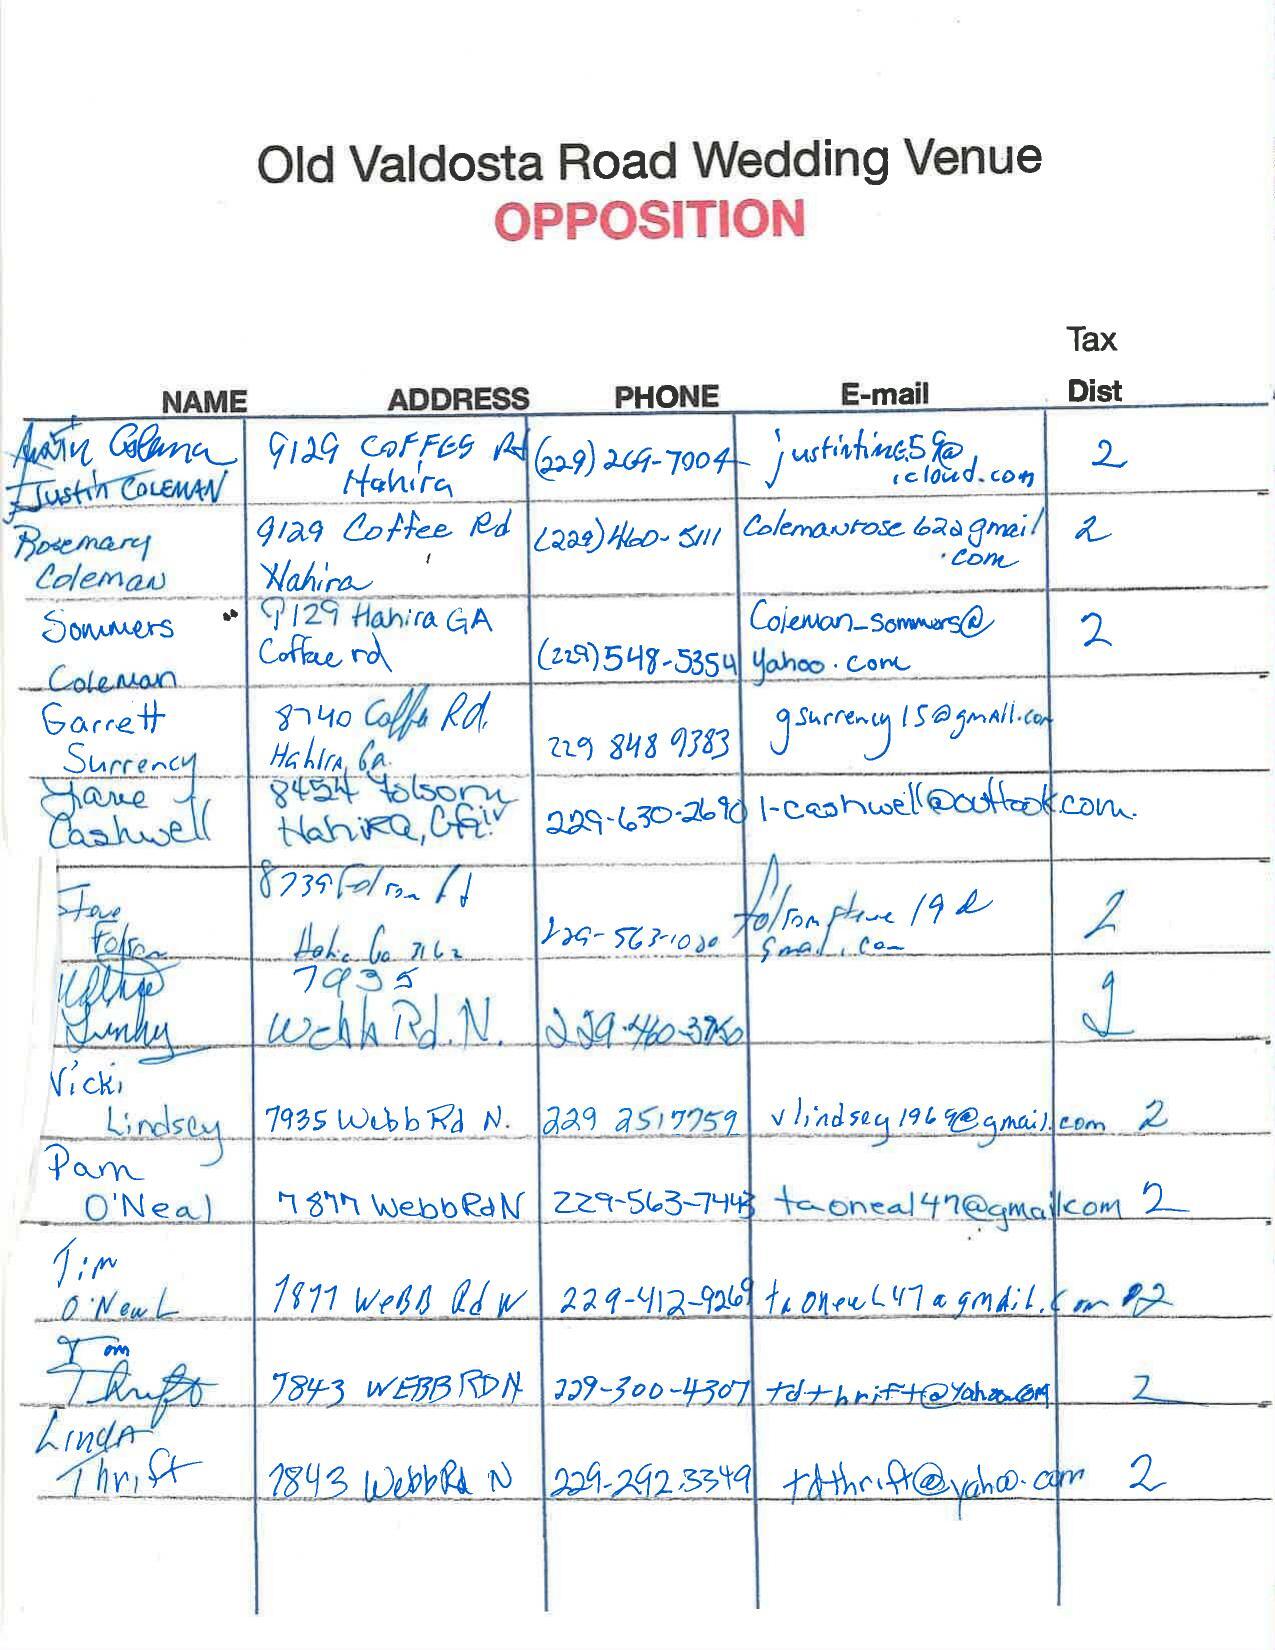 Old Valdosta Road Wedding Venue
OPPOSITION
Tax
NAME ADDRESS PHONE E-mail Dist
Justin COLEMAN 9129 COFFEE Rd Hahira (229) 269-7004 icloud.com 2
Rosemary Coleman 9129 Coffee Rd Hahira (229) 460-5111 Colemanrose62@gmail.com 2
Sommers Coleman 9129 Hahira GA Coffee rd (229) 548-5354 Coleman_Sommers@yahoo.com 2
Garrett Surrency 8740 Coffee Rd. Hahira, Ga. 229 848 9383 gsurrency15@gmail.com
Cashwell 8454 Folsom Hahira, Ga. 229-630-2690 l-cashwell@outlook.com
Steve Folsom 8739 Folsom Rd 229-563-1020 folsomsteve19@gmail.com 2
7935 Webb Rd. N. 2
Vicki Lindsey 7935 Webb Rd N. 229 251 7759 vlindsey1969@gmail.com 2
Pam O'Neal 7877 Webb Rd N 229-563-7443 taoneal47@gmail.com 2
Tim O'NeaL 7877 WeBB Rd N 229-412-9269 taoneaL47@gmail.com 2
Tom Thrift 7843 WEBB RD N 229-300-4307 tdthrift@yahoo.com 2
LINDA Thrift 7843 Webb Rd N 229-292.3349 tdthrift@yahoo.com 2